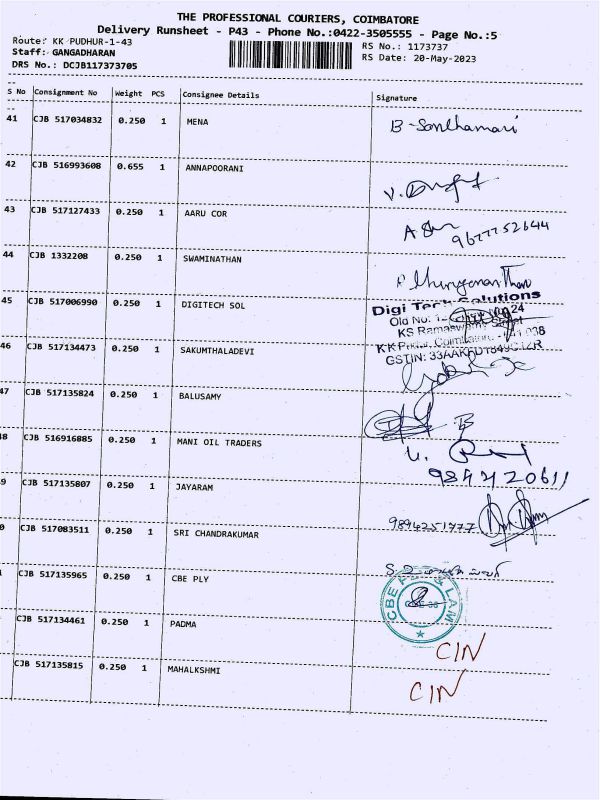 THE PROFESSIONAL COURIERS, COIMBATORE
Delivery Runsheet - P43 - Phone No.:0422-3505555 - Page No.:5
Route: KK PUDHUR-1-43 RS No.: 1173737
Staff: GANGADHARAN RS Date: 20-May-2023
DRS No.: DCJB117373705
S No Consignment No Weight PCS Consignee Details Signature
41 CJB 517034832 0.250 1 MENA
42 CJB 516993608 0.655 1 ANNAPOORANI
43 CJB 517127433 0.250 1 AARU COR
44 CJB 1332208 0.250 1 SWAMINATHAN
45 CJB 517006990 0.250 1 DIGITECH SOL
Digi Tech Solutions
Old No: 24
KS Ramaswamy Street
46 CJB 517134473 0.250 1 SAKUMTHALADEVI
GSTIN:
47 CJB 517135824 0.250 1 BALUSAMY
48 CJB 516916885 0.250 1 MANI OIL TRADERS
9 CJB 517135807 0.250 1 JAYARAM
0 CJB 517083511 0.250 1 SRI CHANDRAKUMAR
CJB 517135965 0.250 1 CBE PLY
CBE & LAM
CJB 517134461 0.250 1 PADMA CIN
CJB 517135815 0.250 1 MAHALKSHMI CIN